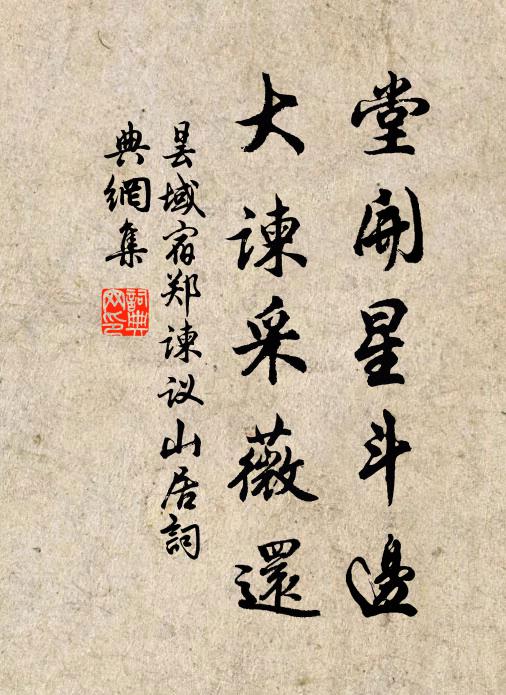 堂開星斗邊
大諫采薇還
昙域宿郑諫议山居詞
典網集
詞典网印